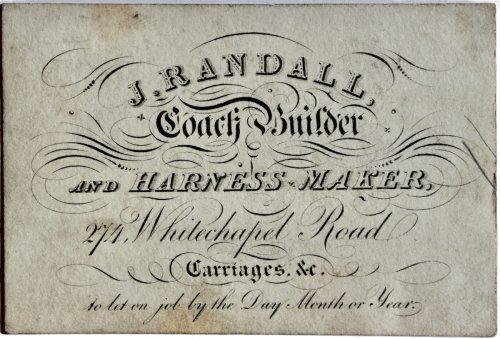 J. RANDALL,
Coach Builder
AND HARNESS MAKER,
274, Whitechapel Road
Carriages, &c.
to let on job by the Day Month or Year.